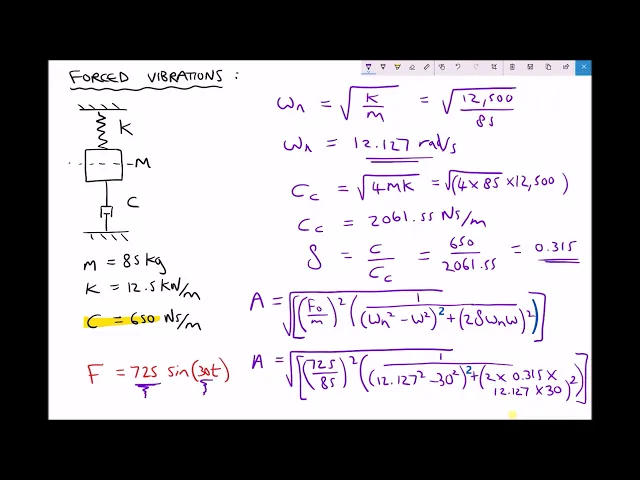 FORCED VIBRATIONS :
K
M
C
m = 85kg
K = 12.5 KN/m
C = 650 NS/m
F = 725 sin(30t)
ωn = √(K/m) = √(12,500/85)
ωn = 12.127 rad/s
Cc = √(4MK) = √(4×85×12,500)
Cc = 2061.55 NS/m
δ = C/Cc = 650/2061.55 = 0.315
A = √[(Fo/m)² (1/((ωn² − ω²)² + (2δωnω)²))]
A = √[(725/85)² (1/((12.127² − 30²)² + (2 × 0.315 × 12.127 × 30)²))]